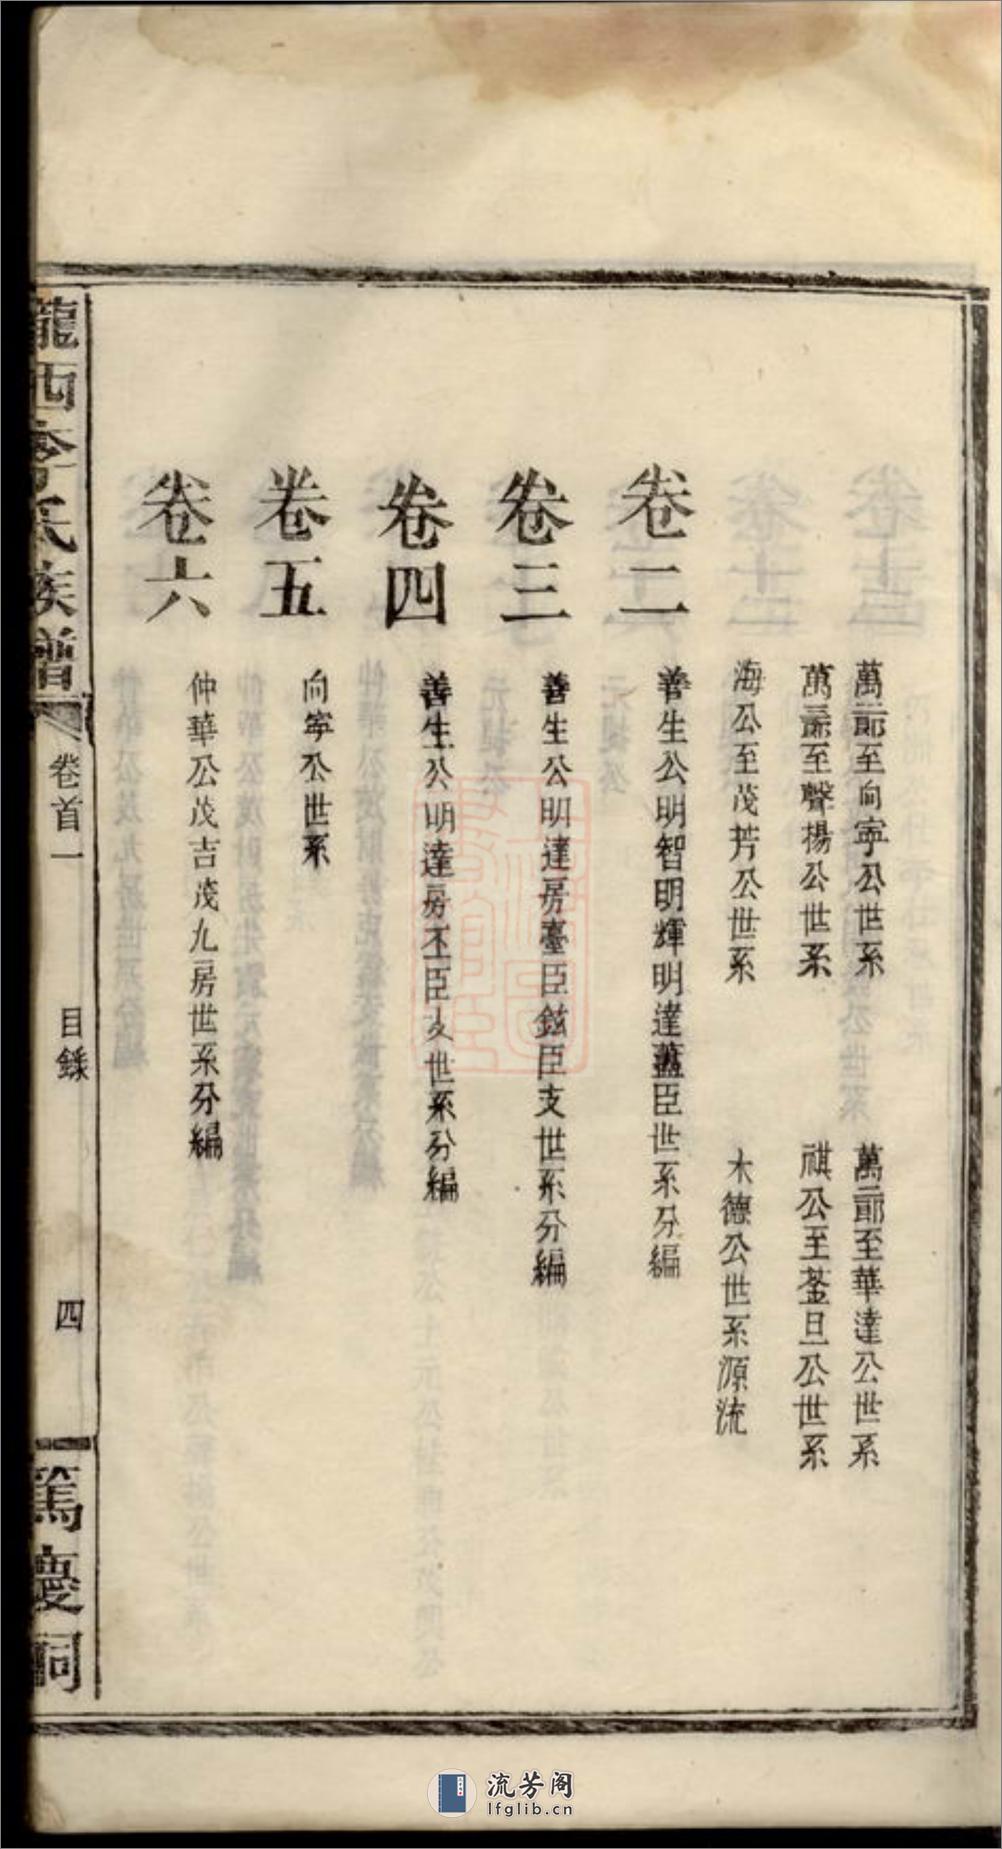 萬二郎至向寧公世系
萬二郎至華達公世系
萬三郎至聲揚公世系
祺公至荃旦公世系
海公至茂芳公世系
木德公世系源流
卷二
善生公明智明輝明達藎臣世系分編
卷三
善生公明達房臺臣鉉臣支世系分編
卷四
善生公明達房丕臣支世系分編
卷五
向寧公世系
卷六
仲華公茂吉茂九房世系分編
隴西李氏族譜
卷首一
目錄
四
篤慶祠
流芳阁
lfglib.cn